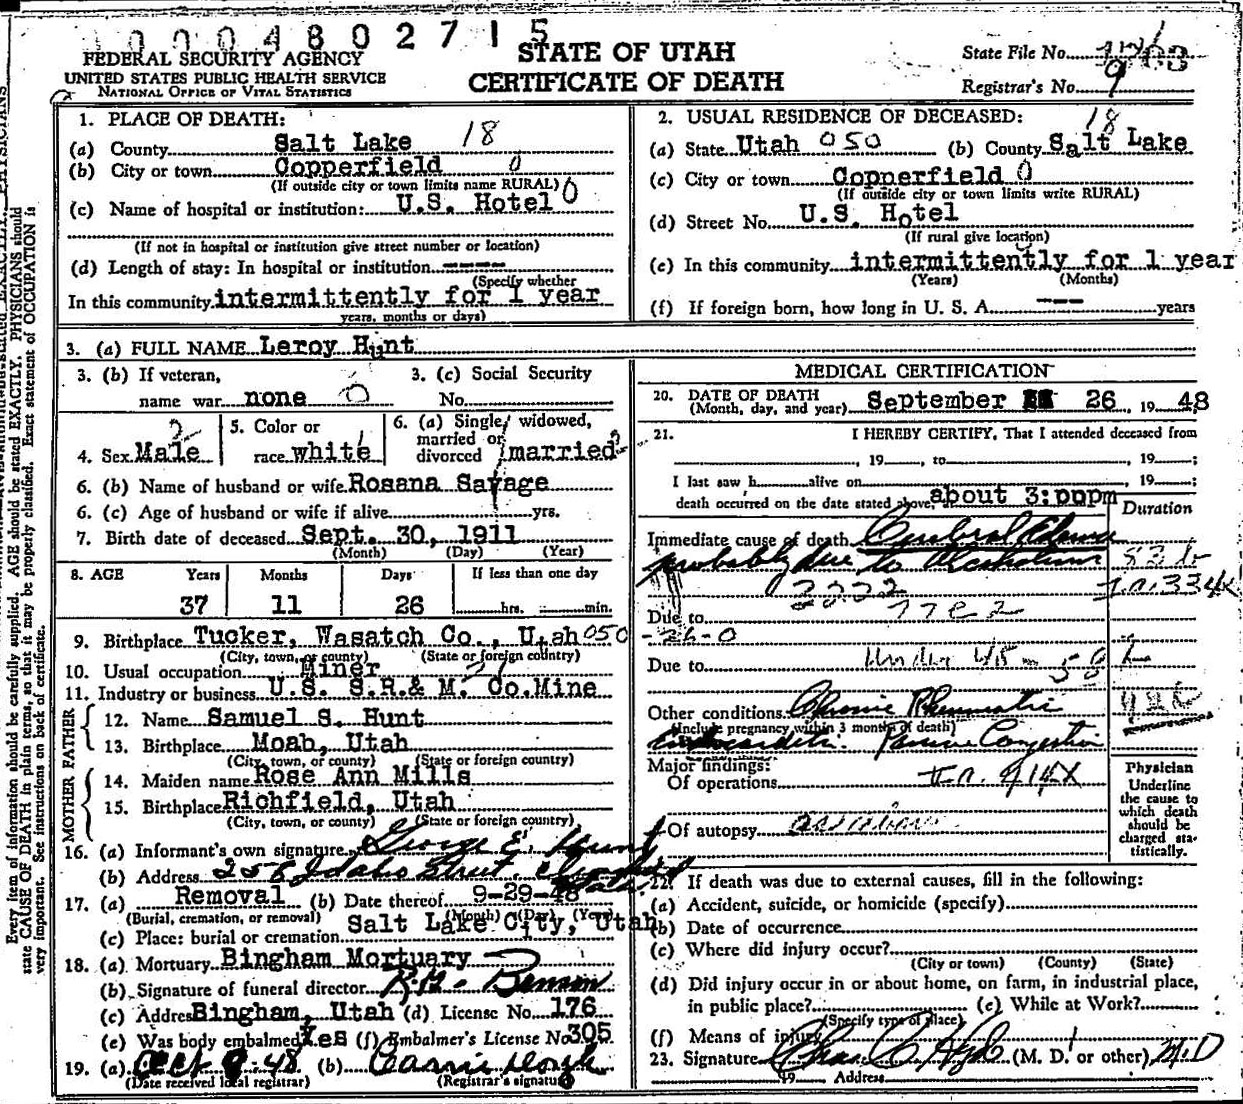 0004802715
FEDERAL SECURITY AGENCY
UNITED STATES PUBLIC HEALTH SERVICE
NATIONAL OFFICE OF VITAL STATISTICS
STATE OF UTAH
CERTIFICATE OF DEATH
State File No.
Registrar's No. 9
1. PLACE OF DEATH:
(a) County Salt Lake 18
(b) City or town Copperfield 0
(If outside city or town limits name RURAL) 0
(c) Name of hospital or institution: U.S. Hotel
(If not in hospital or institution give street number or location)
(d) Length of stay: In hospital or institution ----
(Specify whether
In this community intermittently for 1 year
years, months or days)
2. USUAL RESIDENCE OF DECEASED: 18
(a) State Utah 050 (b) County Salt Lake
(c) City or town Copperfield 0
(If outside city or town limits write RURAL)
(d) Street No. U.S. Hotel
(If rural give location)
(e) In this community intermittently for 1 year
(Years) (Months)
(f) If foreign born, how long in U. S. A. --- years
3. (a) FULL NAME Leroy Hunt
3. (b) If veteran,
name war none 0
3. (c) Social Security
No.
4. Sex Male 2
5. Color or
race white 1
6. (a) Single, widowed,
married or
divorced married
6. (b) Name of husband or wife Rosana Savage
6. (c) Age of husband or wife if alive yrs.
7. Birth date of deceased Sept. 30, 1911
(Month) (Day) (Year)
8. AGE Years Months Days If less than one day
37 11 26 hrs. min.
9. Birthplace Tucker, Wasatch Co., Utah 050
(City, town, or county) (State or foreign country)
10. Usual occupation Miner
11. Industry or business U.S. S.R.& M. Co.Mine
FATHER
12. Name Samuel S. Hunt
13. Birthplace Moab, Utah
(City, town, or county) (State or foreign country)
MOTHER
14. Maiden name Rose Ann Mills
15. Birthplace Richfield, Utah
(City, town, or county) (State or foreign country)
16. (a) Informant's own signature George E. Hunt
(b) Address 256 Idaho Street,
17. (a) Removal (b) Date thereof 9-29-48
(Burial, cremation, or removal) (Month) (Day) (Year)
(c) Place: burial or cremation Salt Lake City, Utah
18. (a) Mortuary Bingham Mortuary
(b) Signature of funeral director Benson
(c) Address Bingham, Utah (d) License No. 176
(e) Was body embalmed Yes (f) Embalmer's License No. 305
19. (a) Oct 9-48 (b) Carrie
(Date received local registrar) (Registrar's signature)
MEDICAL CERTIFICATION
20. DATE OF DEATH
(Month, day, and year) September 26, 1948
21. I HEREBY CERTIFY, That I attended deceased from
, 19 , to , 19 ;
I last saw h alive on , 19 ;
death occurred on the date stated above, about 3:00pm
Duration
Immediate cause of death Cerebral Edema
probably due to Alcoholism
Due to 77E2
-26-0
Due to under 45-
Other conditions Chronic Rheumatic
(Include pregnancy within 3 months of death)
Endocarditis. Passive Congestion
Major findings:
Of operations
Of autopsy
Physician
Underline
the cause to
which death
should be
charged sta-
tistically.
22. If death was due to external causes, fill in the following:
(a) Accident, suicide, or homicide (specify)
(b) Date of occurrence
(c) Where did injury occur?
(City or town) (County) (State)
(d) Did injury occur in or about home, on farm, in industrial place,
in public place? (e) While at Work?
(Specify type of place)
(f) Means of injury
23. Signature Chas. C. (M. D. or other) M.D
19 Address
Every item of information should be carefully supplied. AGE should be stated EXACTLY. PHYSICIANS should
state CAUSE OF DEATH in plain terms, so that it may be properly classified. Exact statement of OCCUPATION is
very important. See instructions on back of certificate.